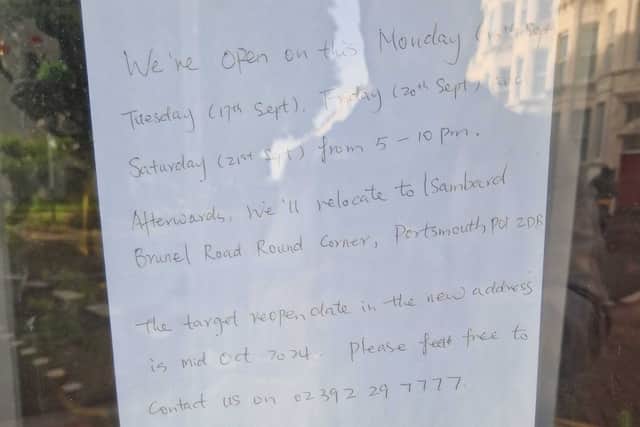 We're open on this Monday
Tuesday (17th Sept), Friday (20th Sept) and
Saturday (21st Sept) from 5 - 10 pm.
Afterwards, We'll relocate to Isambard
Brunel Road Round Corner, Portsmouth, PO1 2DR
The target reopen date in the new address
is mid Oct 2024. Please feel free to
Contact us on 02392 29 7777.